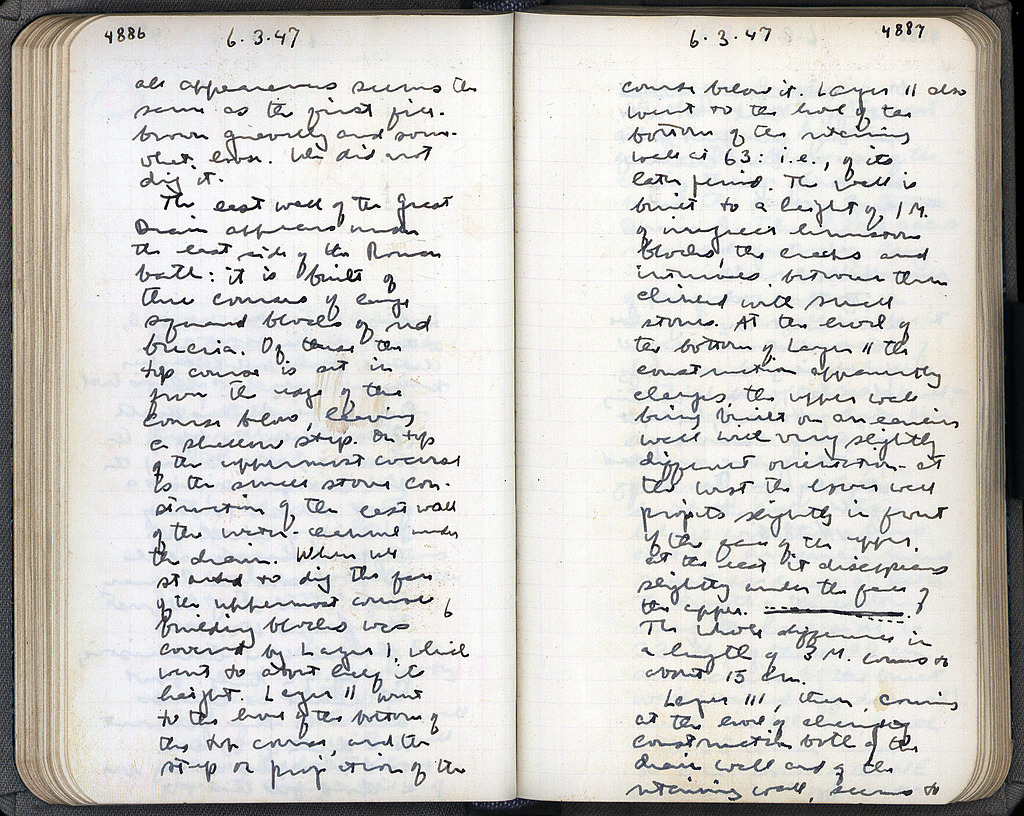 4886
6.3.47
all appearances seems the
same as the first fill.
brown gravelly and some-
what loose. We did not
dig it.
The east wall of the Great
Drain appears under
the east side of the Roman
bath: it is built of
three courses of large
squared blocks of red
breccia. Of these the
top course is set in
from the edge of the
course below, leaving
a shallow step. On top
of the uppermost course
is the small stone con-
struction of the east wall
of the water-channel under
the drain. When we
started to dig the face
of the uppermost course of
building blocks was
covered by Layer I, which
went to about half its
height. Layer II went
to the level of the bottom of
the top course, and the
step or projection of the
6.3.47
4887
course below it. Layer II also
went to the level of the
bottom of the retaining
wall at 63: i.e., of its
later period. The wall is
built to a height of 1 M.
of irregular limestone
blocks, the cracks and
interstices between them
chinked with small
stones. At the level of
the bottom of Layer II the
construction apparently
changes, the upper wall
being built on an earlier
wall with very slightly
different orientation - at
the west the lower wall
projects slightly in front
of the face of the upper,
at the east it disappears
slightly under the face of
the upper.
The whole difference in
a length of 3 M. comes to
about 15 cm.
Layer III, then, coming
at the level of changing
construction both of the
drain wall and of the
retaining wall, seems to